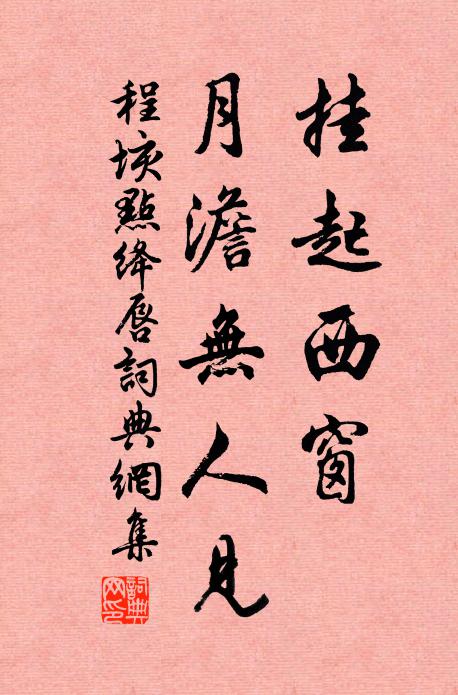 挂起西窗
月澹無人見
程垓點絳唇詞典網集
詞典網印